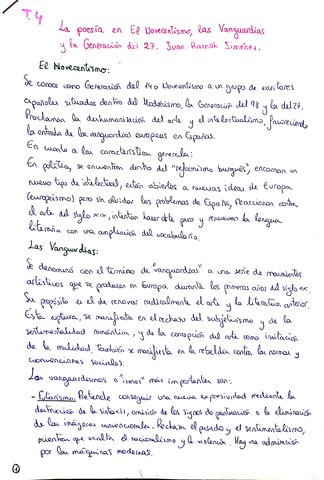 T.4
La poesía en El Novecentismo, las Vanguardias
y la Generación del 27. Juan Ramón Jiménez.
El Novecentismo:
Se conoce como Generación del 14 o Novecentismo a un grupo de escritores
españoles situados dentro del Modernismo, la Generación del 98 y la del 27.
Proclaman la deshumanización del arte y el intelectualismo, favoreciendo
la entrada de las vanguardias europeas en España.
En cuanto a las características generales:
En política, se encuentran dentro del "reformismo burgués", encarnan un
nuevo tipo de intelectual, están abiertos a nuevas ideas de Europa
(europeísmo) pero sin olvidar los problemas de España, Reaccionan contra
el arte del siglo XIX, intentan hacer arte puro y renuevan la lengua
literaria con una ampliación del vocabulario.
Las Vanguardias:
Se denominó con el término de "vanguardias" a una serie de movimientos
artísticos que se producen en Europa durante los primeros años del siglo XX.
Su propósito es el de renovar radicalmente el arte y la literatura anterior.
Esta ruptura, se manifiesta en el rechazo del subjetivismo y de la
sentimentalidad romántica, y de la concepción del arte como imitación
de la realidad. También se manifiesta en la rebeldía contra las normas y
convenciones sociales.
Los vanguardismos o "ismos" más importantes son:
- Futurismo: Pretende conseguir una nueva expresividad mediante la
destrucción de la sintaxis, omisión de los signos de puntuación o la eliminación
de las imágenes convencionales. Rechaza el pasado y el sentimentalismo,
mientras que exalta el racionalismo y la violencia. Hay una admiración
por las máquinas modernas.
1